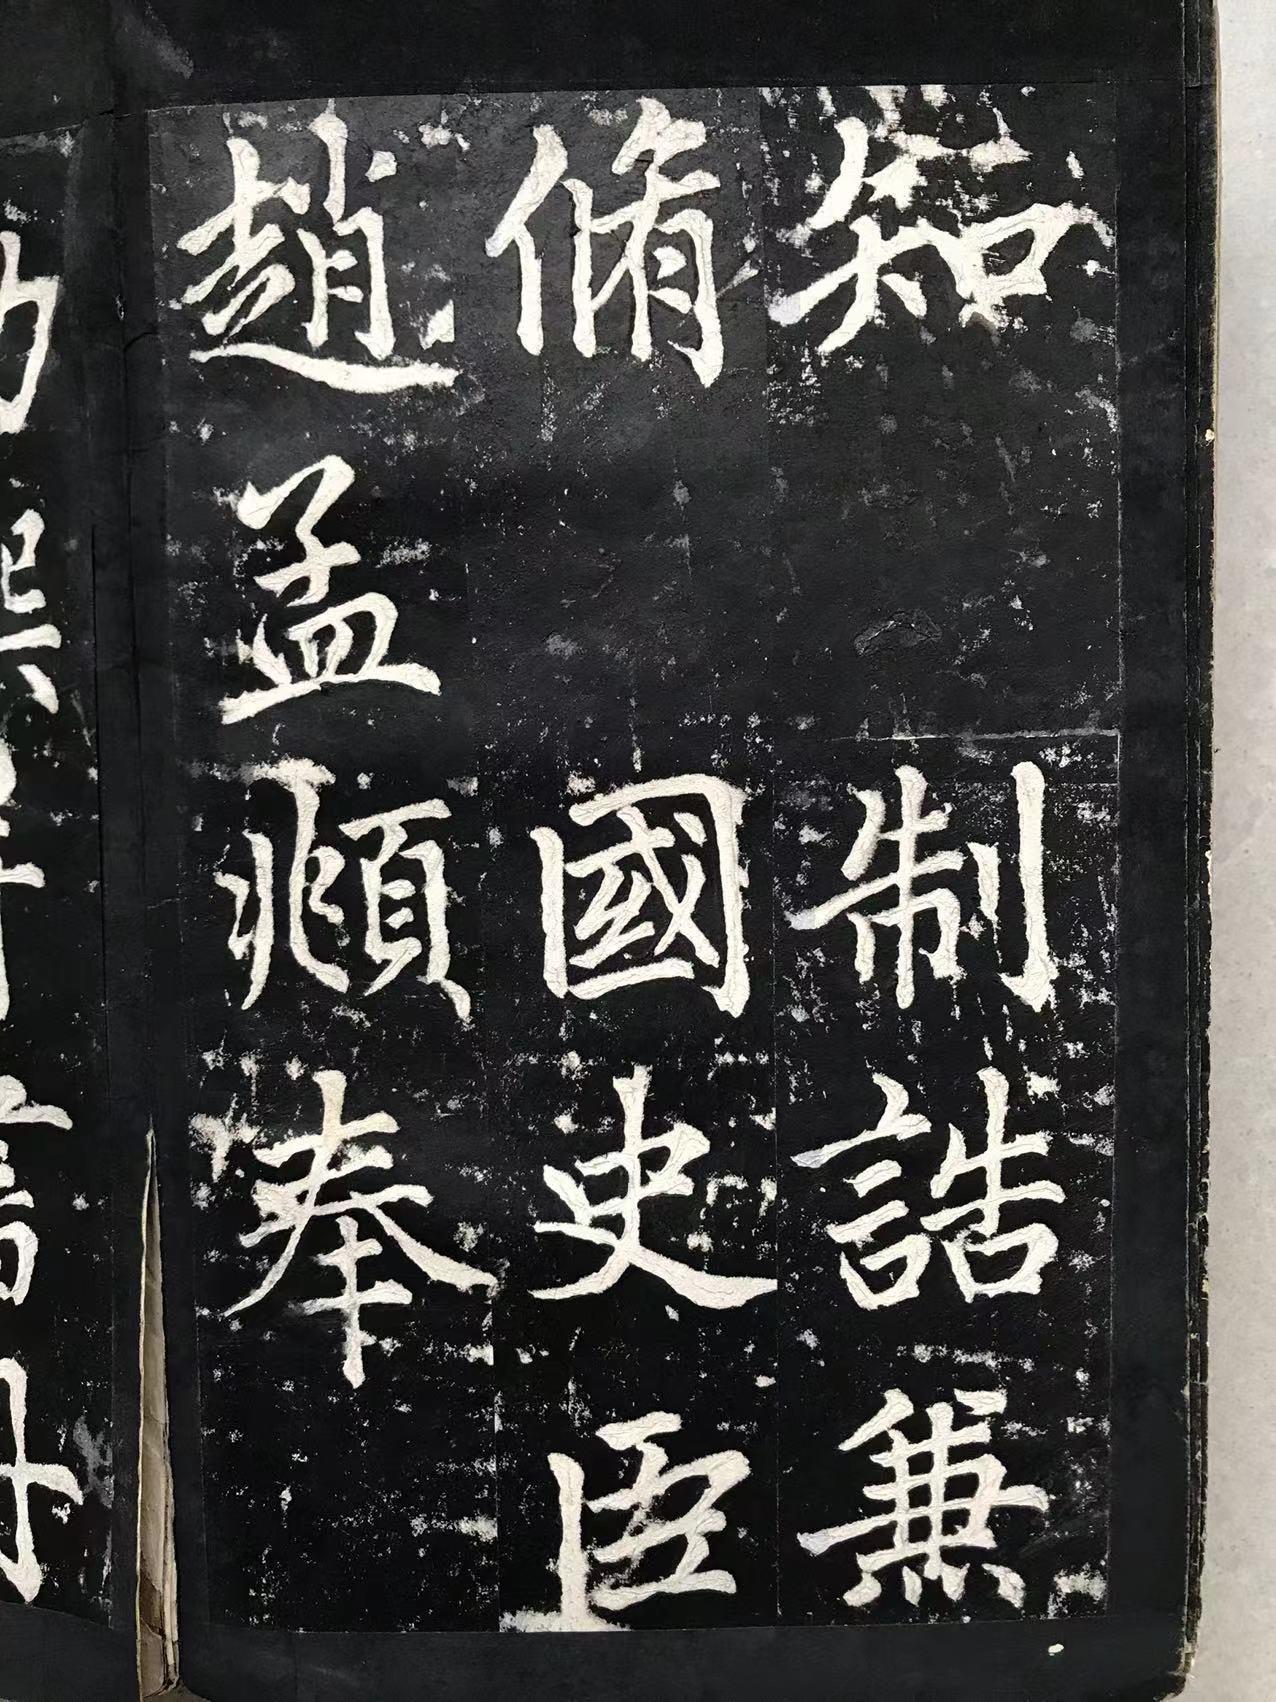 知制誥兼
脩國史臣
趙孟頫奉